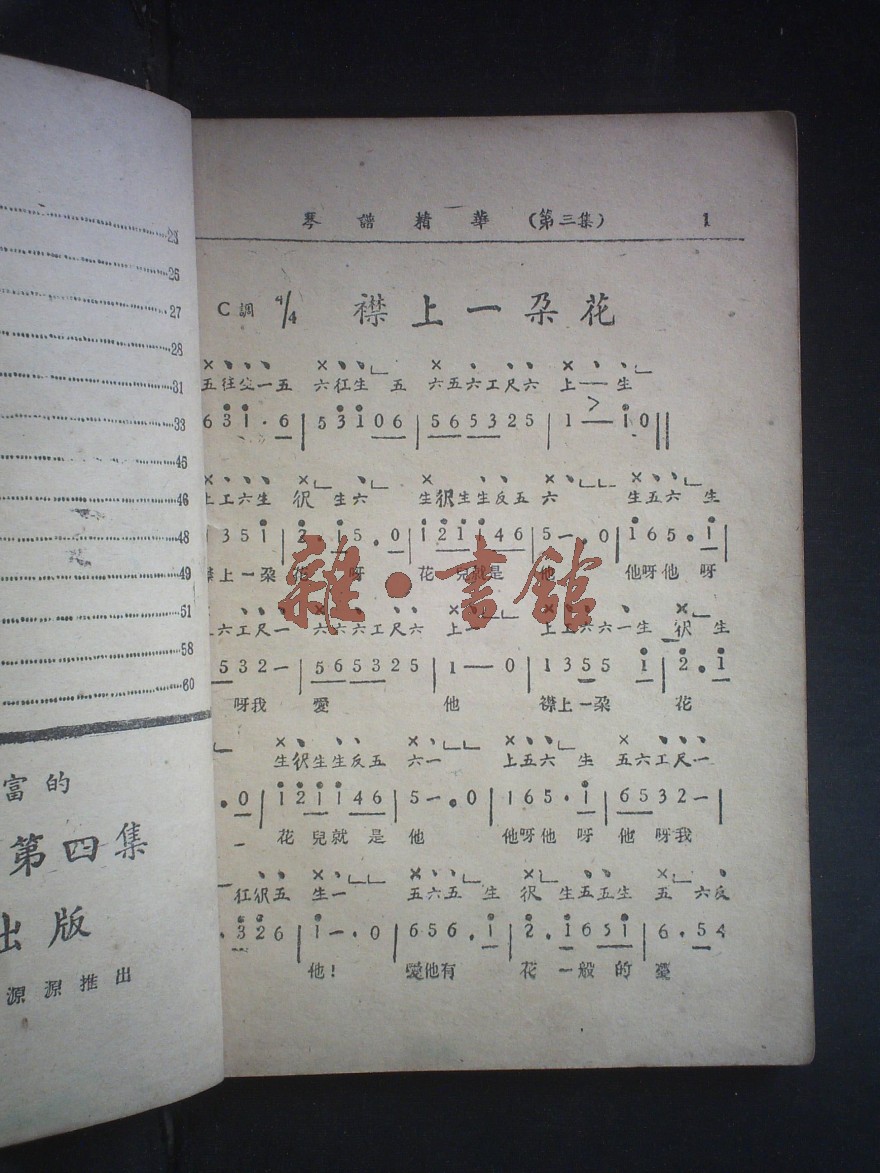 23
25
27
28
31
33
45
46
48
49
51
58
60
富的
第四集
出版
源源推出
琴譜精華 (第三集) 1
C調 4/4 襟上一朵花
五六工尺六 上——生
6 3 1 · 6 | 5 3 1 0 6 | 5 6 5 3 2 5 | 1 — 1 0 ||
工六生 伬 生六 生伬生生反五 六 生五六 生
1 3 5 1 | 2 · 1 5 · 0 | 1 2 1 1 4 6 | 5 — · 0 | 1 6 5 · 1
襟上一朵 花 呀 花 兒就是 他 他呀他 呀
雜·書館
六工尺一 六五六工尺六 上一 上工六六一生 伬 生
5 3 2 — | 5 6 5 3 2 5 | 1 — 0 | 1 3 5 5 1 | 2 · 1
呀我 愛 他 襟上一朵 花
生伬生生反五 六一 上五六 生 五六工尺一
· 0 | 1 2 1 1 4 6 | 5 — · 0 | 1 6 5 · 1 | 6 5 3 2 —
花 兒就 是 他 他呀他 呀 他 呀我
仜伬五 生一 五六五 生 伬 生五五生 五 六反
· 3 2 6 | 1 — · 0 | 6 5 6 · 1 | 2 · 1 6 5 1 | 6 · 5 4
他! 愛他有 花 一般 的